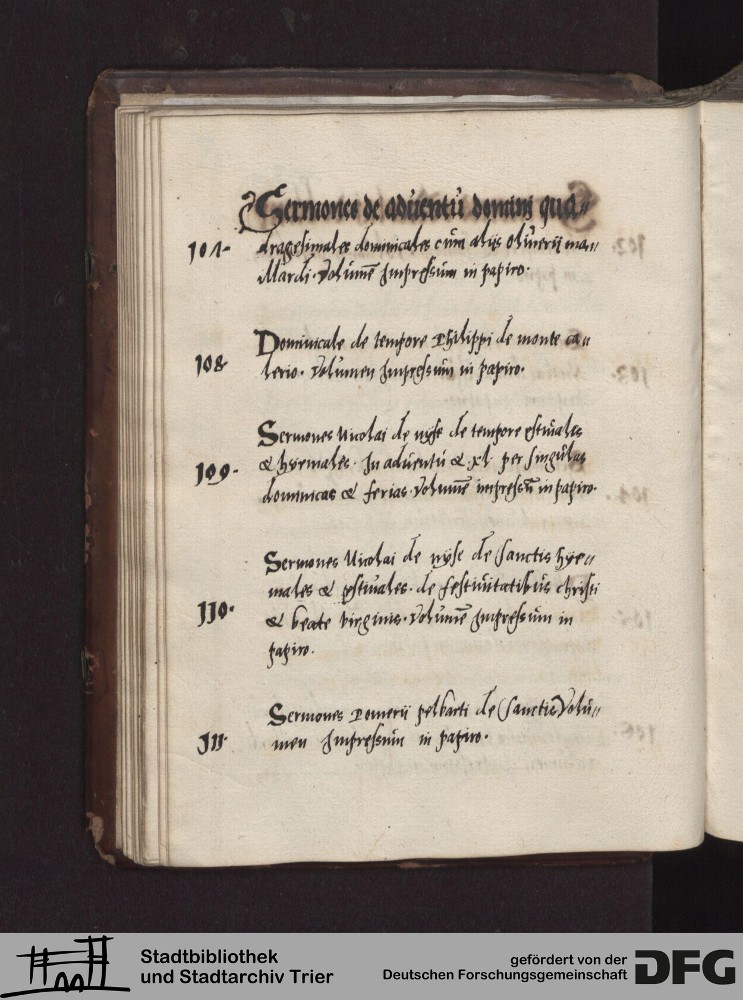 Sermones de aduentu domini qua„
107· dragesimales dominicales cum aliis oliuerii man„
Mardi· Volumē Impressum in papiro·
Dominicale de tempore Philippi de monte ca„
108 lerio· Volumen Impressum in papiro·
Sermones Nicolai de nyse de tempore estiuales
109· & hyemales· In aduentu & xl· per singulas
dominicas & ferias· Volumē impressū in papiro·
Sermones Nicolai de nyse de sanctis hye„
males & estiuales· de festiuitatibus christi
110· & beate virginis· Volumē Impressum in
papiro·
Sermones Pomerii pelbarti de sanctis Volu„
111· men Impressum in papiro·
Stadtbibliothek
und Stadtarchiv Trier
gefördert von der
Deutschen Forschungsgemeinschaft
DFG